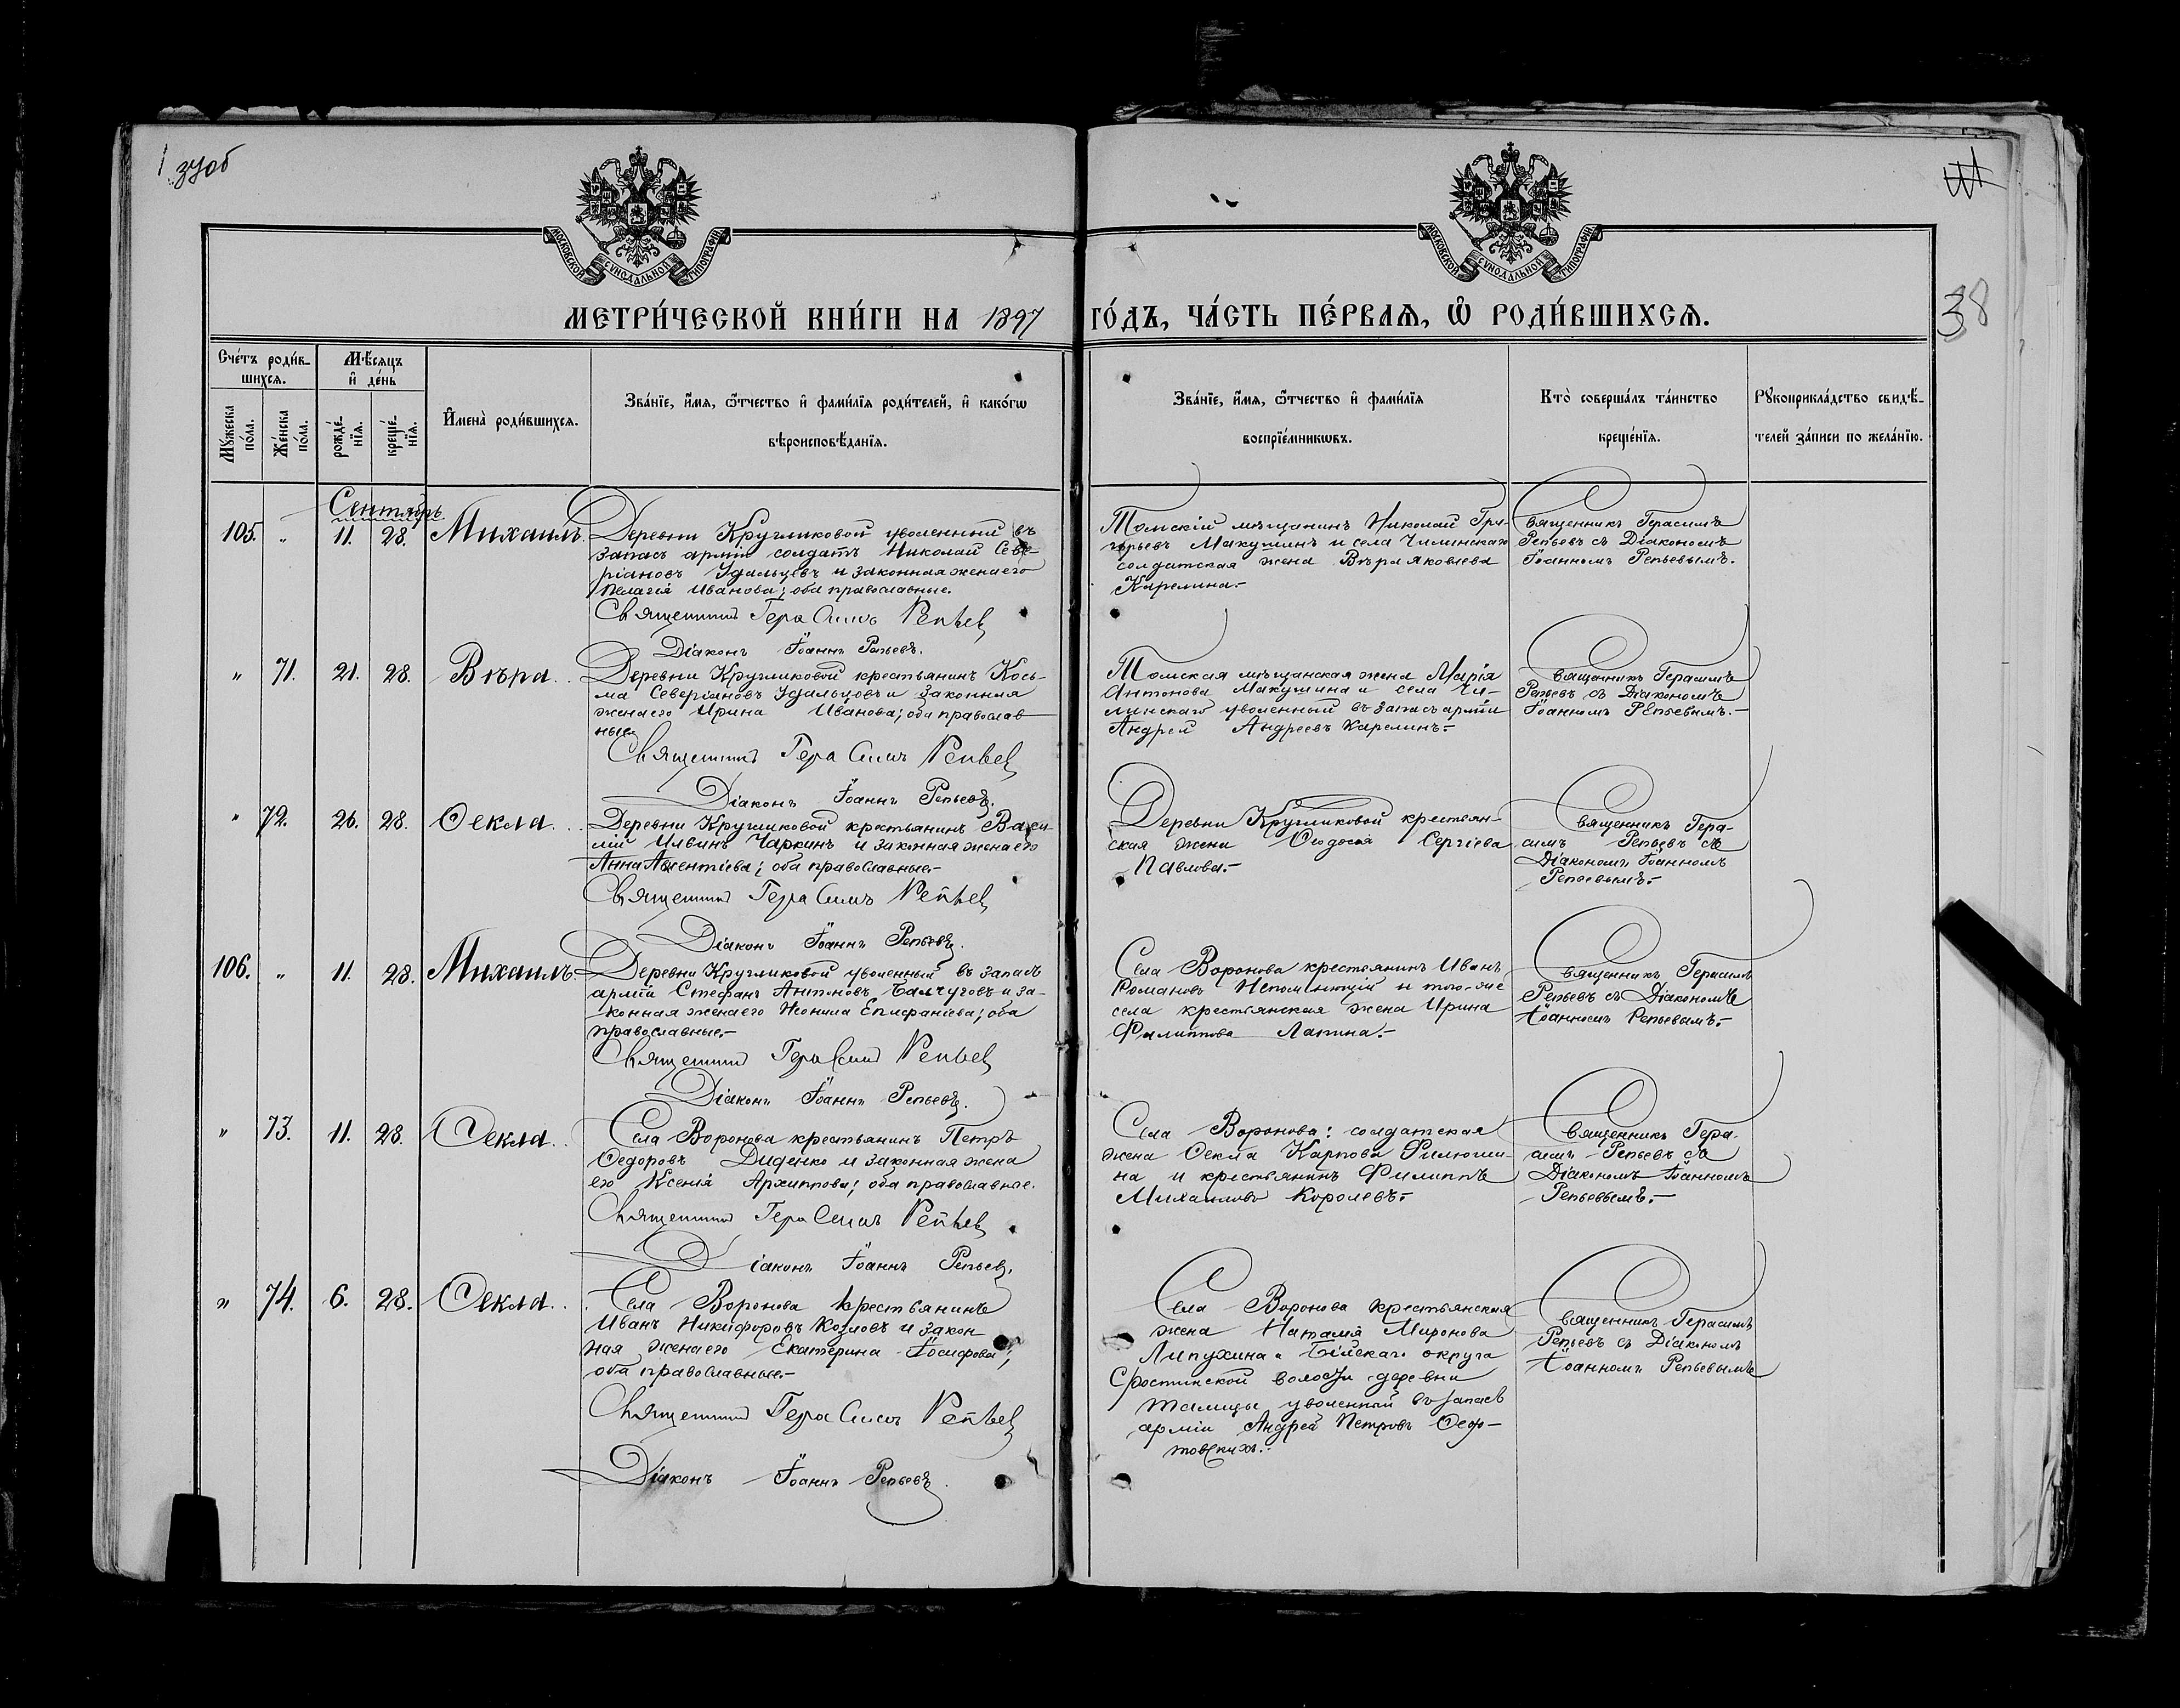 37об
38
МОСКОВСКОЙ СѴНОДАЛЬНОЙ ТИПОГРАФІИ
МОСКОВСКОЙ СѴНОДАЛЬНОЙ ТИПОГРАФІИ
МЕТРИ́ЧЕСКОЙ КНИ́ГИ НА 1897 ГО́ДЪ, ЧА́СТЬ ПЕ́РВАѦ, Ѡ҆ РОДИ́ВШИХСѦ.
Сче́тъ роди́в-
шихсѧ.
Мꙋ́жеска по́ла.
Же́нска по́ла.
Мѣ́сѧцъ
и҆ де́нь
рожде́-
нїѧ.
креще́-
нїѧ.
И҆мена̀ роди́вшихсѧ.
Зва́нїе, и҆́мѧ, ѻ҆́тчество и҆ фами́лїѧ роди́телей, и҆ како́гѡ
вѣроисповѣ́данїѧ.
Зва́нїе, и҆́мѧ, ѻ҆́тчество и҆ фами́лїѧ
воспрїе́мникѡвъ.
Кто̀ соверша́лъ та́инство
креще́нїѧ.
Рꙋкоприкла́дство свидѣ́-
телей за́писи по жела́нїю.
Сентябрь
105. " 11. 28. Михаилъ.
Деревни Кругликовой уволенный въ
запасъ арміи солдатъ Николай Севе-
ріановъ Удальцевъ и законная жена его
Пелагія Иванова; оба православные.
Священникъ Герасимъ Репьев
Діаконъ Іоаннъ Репьевъ.
Томскій мѣщанинъ Николай Гри-
горьевъ Макушинъ и села Чилинскаго
солдатская жена Вѣра Яковлева
Карелина.-
Священникъ Герасимъ
Репьевъ съ Діакономъ
Іоанномъ Репьевымъ.
" 71. 21. 28. Вѣра.
Деревни Кругликовой крестьянинъ Кось-
ма Северіановъ Удальцовъ и законная
жена его Ирина Иванова; оба православ-
ные.
Священникъ Герасимъ Репьев
Діаконъ Іоаннъ Репьевъ.
Томская мѣщанская жена Марія
Антонова Макушина и села Чи-
линскаго уволенный въ запасъ арміи
Андрей Андреевъ Карелинъ.-
Священникъ Герасимъ
Репьевъ съ Діакономъ
Іоанномъ Репьевымъ.-
" 72. 26. 28. Ѳекла.
Деревни Кругликовой крестьянинъ Васи-
лій Ильинъ Чаркинъ и законная жена его
Анна Авентіева; оба православные.-
Священникъ Герасимъ Репьев
Діаконъ Іоаннъ Репьевъ.
Деревни Кругликовой крестьян-
ская жена Ѳеодосія Сергіева
Павлова.-
Священникъ Гера-
симъ Репьевъ съ
Діакономъ Іоанномъ
Репьевымъ.-
106. " 11. 28. Михаилъ.
Деревни Кругликовой уволенный въ запасъ
арміи Стефанъ Антоновъ Балчуговъ и за-
конная жена его Неонила Епифаніева; оба
православные.-
Священникъ Герасимъ Репьев
Діаконъ Іоаннъ Репьевъ.
Села Воронова крестьянинъ Иванъ
Романовъ Непомнющій и того-же
села крестьянская жена Ирина
Филиппова Лапина.-
Священникъ Герасимъ
Репьевъ съ Діакономъ
Іоанномъ Репьевымъ.-
" 73. 11. 28. Ѳекла.
Села Воронова крестьянинъ Петръ
Ѳедоровъ Диденко и законная жена
его Ксенія Архиппова; оба православные.
Священникъ Герасимъ Репьев
Діаконъ Іоаннъ Репьев.
Села Воронова: солдатская
жена Ѳекла Карпова Филюши-
на и крестьянинъ Филиппъ
Михаиловъ Королевъ.-
Священникъ Гера-
симъ Репьевъ съ
Діакономъ Іоанномъ
Репьевымъ.-
" 74. 6. 28. Ѳекла.
Села Воронова крестьянинъ
Иванъ Никифоровъ Козловъ и закон-
ная жена его Екатерина Іосифова;
оба православные.-
Священникъ Герасимъ Репьев
Діаконъ Іоаннъ Репьевъ.
Села Воронова крестьянская
жена Наталія Миронова
Липухина и Бійскаго округа
Сростинской волости деревни
Талицы уволенный въ запасъ
арміи Андрей Петровъ Ѳеф-
товскихъ.-
Священникъ Герасимъ
Репьевъ съ Діакономъ
Іоанномъ Репьевымъ